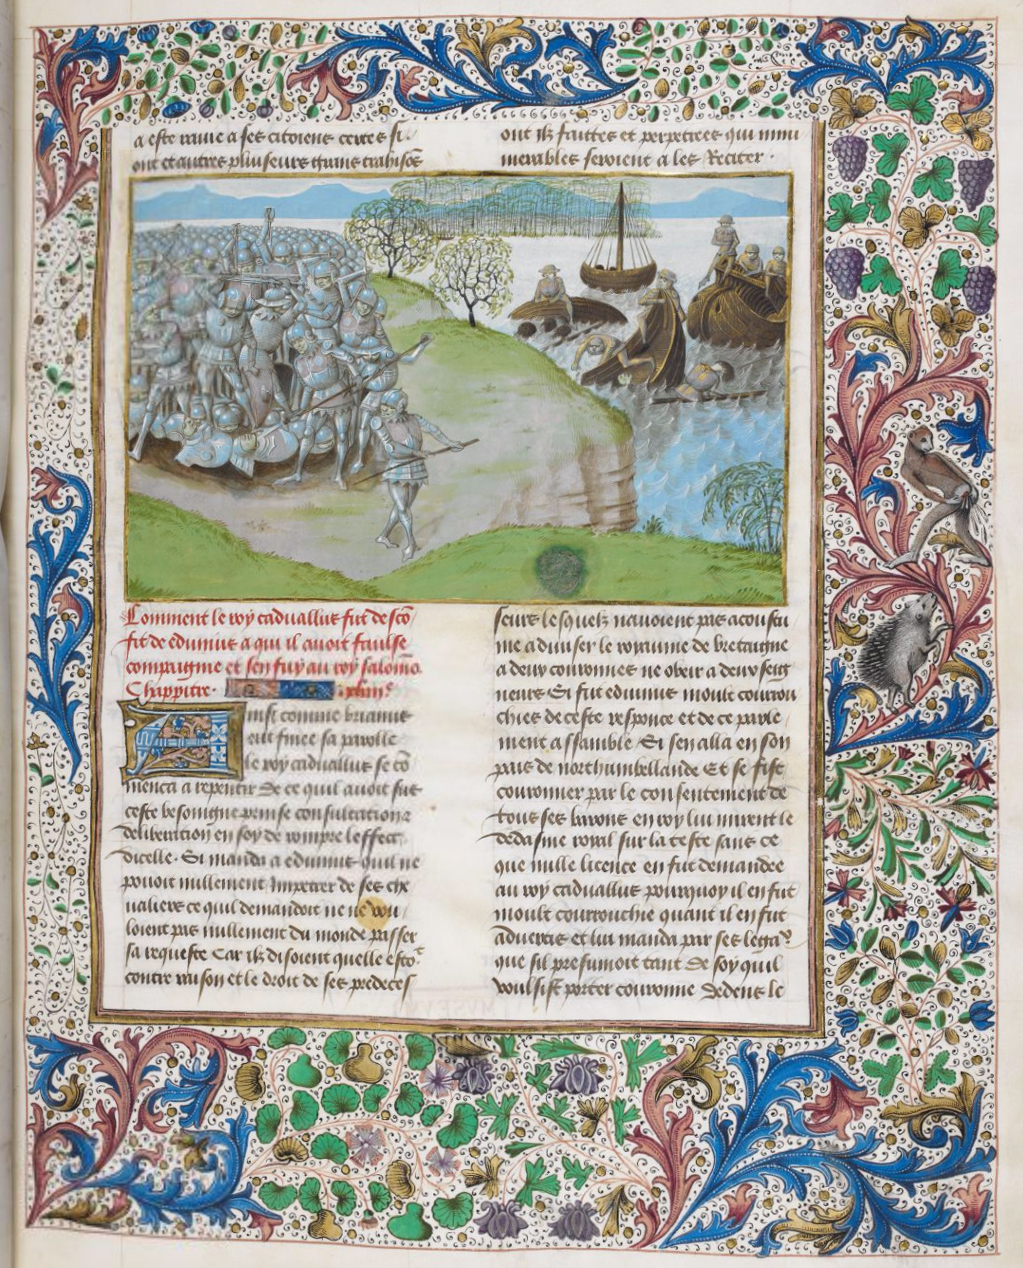 a este ravie a ses citoiens certes si
ont et autres pluiseurs grans trahisōs
ont ilz faittes et perpetrees qui innu
merables seroient a les Reciter .
Comment le roy cadvallus fut desco
fit de eduvius a qui il avoit faulse
compaignie et sen fuy au roy salomō.
Chappitre.
Ainsi comme brianus
eut finee sa parolle
le roy cadvallus se cō
menca a repentir De ce quil avoit sur
ceste besoingne prinse consultacion
deliberation en soy de rompre leffect
dicelle. Si manda a eduvius quil ne
pouoit nullement Impetrer de ses che
valiers ce quil demandoit ne ne vou
loient pas nullement du monde passer
sa requeste Car ilz disoient quelle estoit
contre raison et le droit de ses predeces
seurs lesquelz navoient pas acoustu
me a diviser le royaume de bretaigne
a deux couronnes ne obeir a deux seig
neurs Si fut eduvius moult courrou
chies de ceste responce et de ce parle
ment assamble Si sen alla en son
pais de northumbellande Et se fist
couronner par le consentement de
tous ses barons en roy lui mirent le
dedasme royal sur la teste sans ce
que nulle licence en fut demandee
au roy cadvallus pourquoy il en fut
moult courrouchie quant il en fut
advertis et lui manda par ses legaꝰ
que sil presumoit tant De soy quil
voulsist porter couronne Dedens le